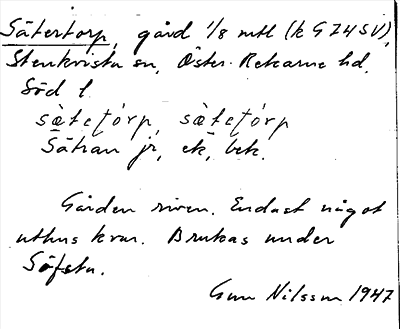 Sätertorp, gård 1/8 mtl (k G 74 SV),
Stenkvista sn, Öster-Rekarne hd,
Söd l.
sätetórp, sätetórp
Sätran jr, ek, bek.
Gården riven. Endast något
uthus kvar. Brukas under
Söfsta.
Gun Nilsson 1947